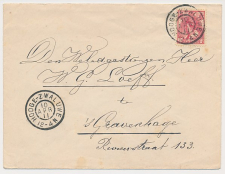 HOOGE-ZWALUWE
Den WelEdelgestrengen Heer
W. G. Loeff
te
's Gravenhage
133.
HOOGE-ZWALUWE